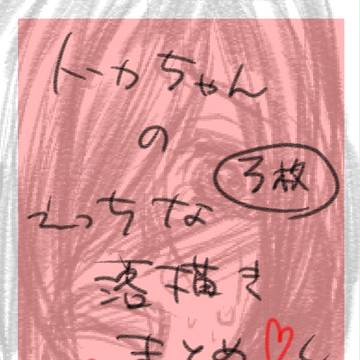 トーカちゃん
の
3枚
えっちな
落描き
まとめ♡く